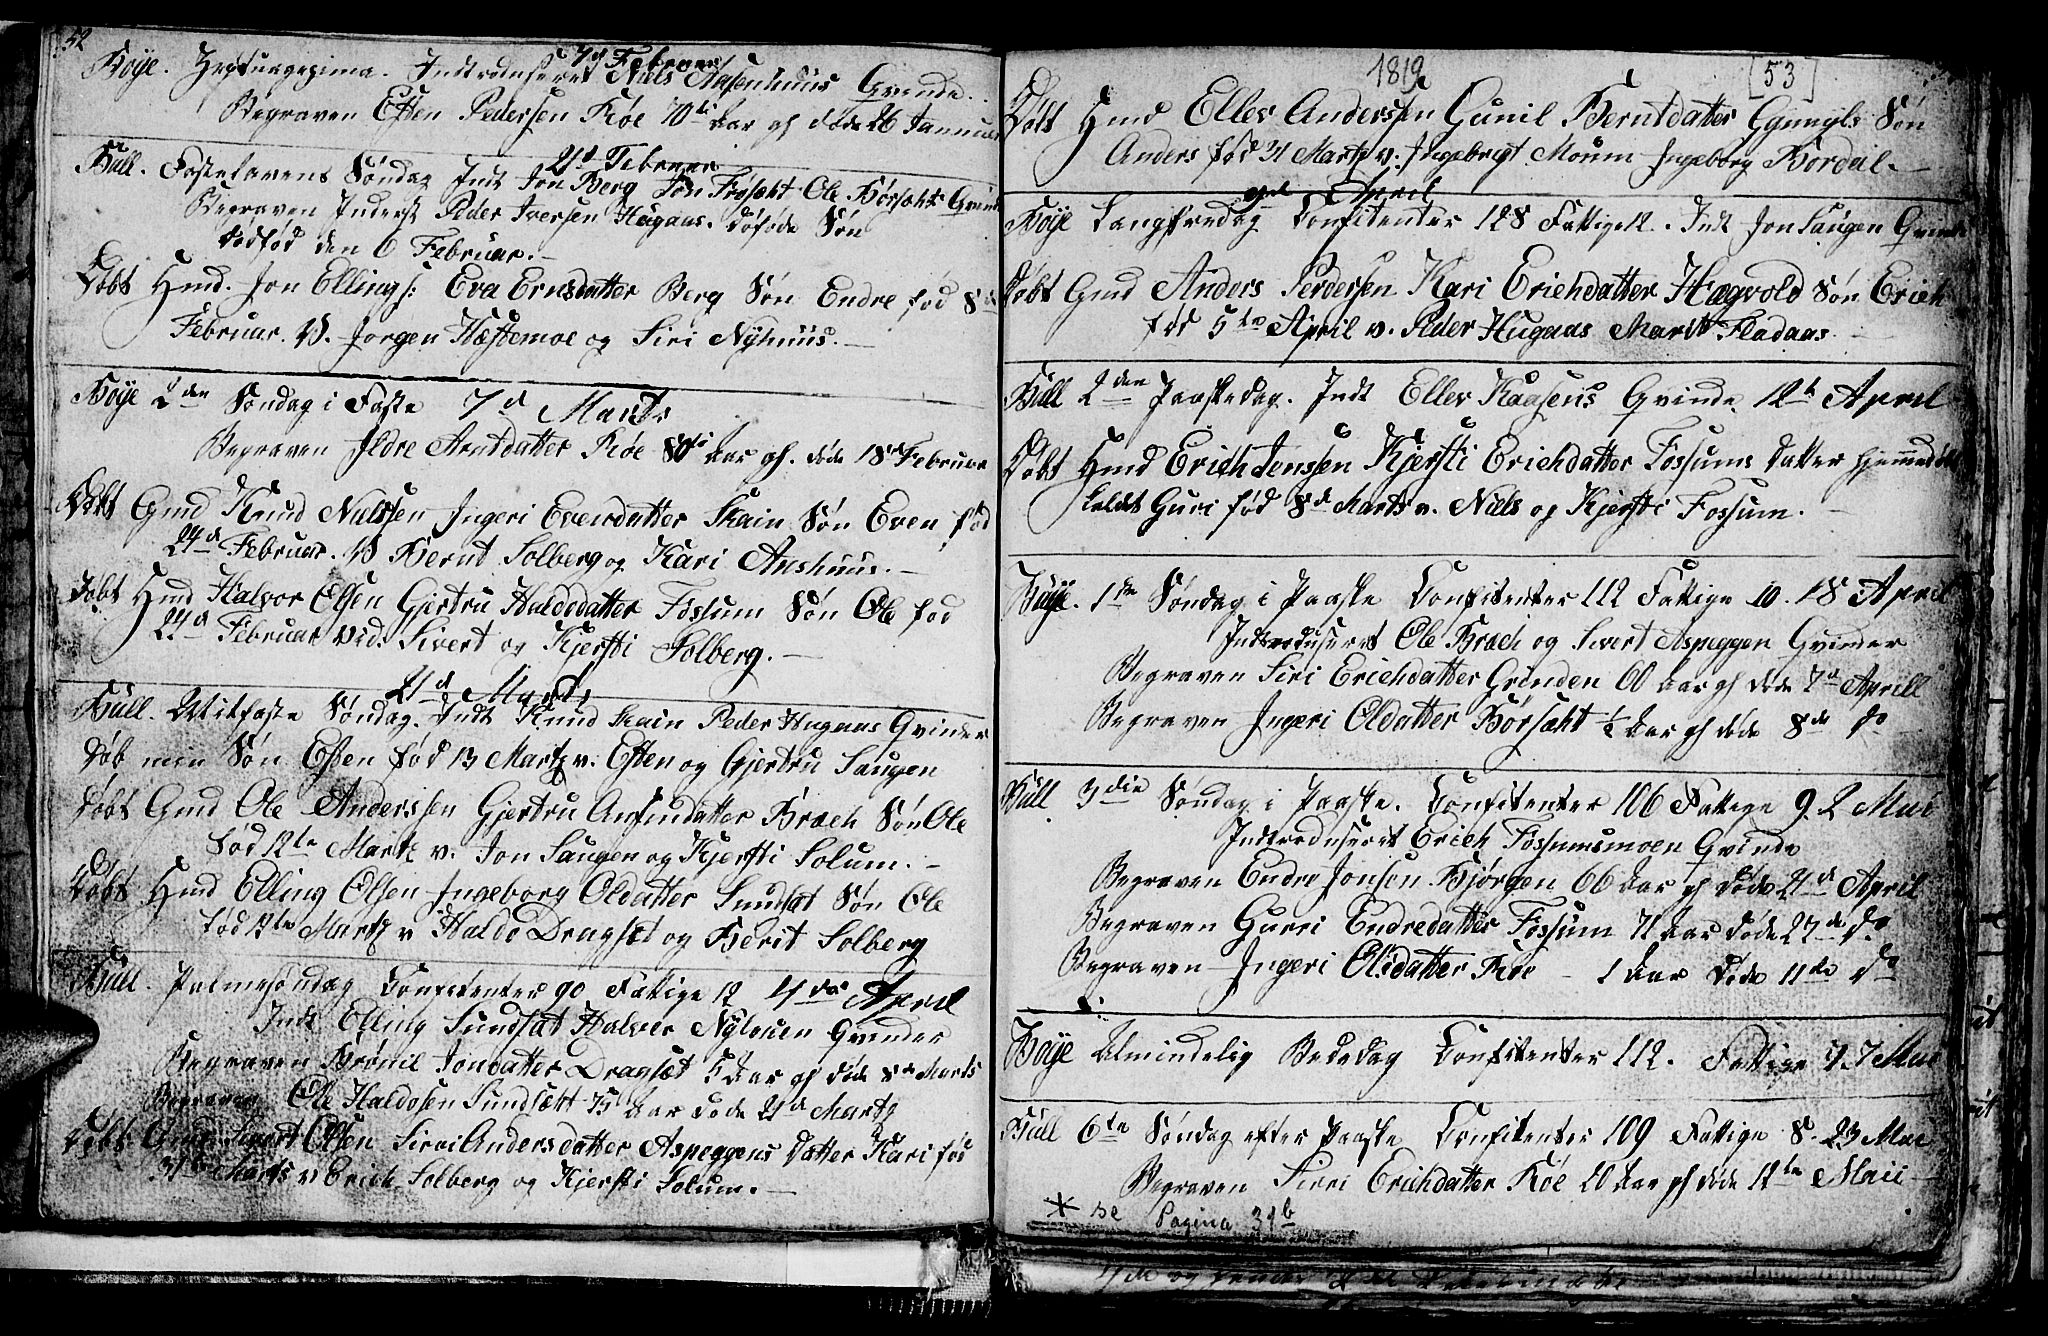 52
7d Februar
Høye. Septuagesima. Introduseret Niels Aasenhuus Qvinde.
Begraven Esten Pedersen Røe 70ti Aar gl døde 26 Januar
21d Februar
Búll. Fastelavens Søndag Indt Jon Berg Jon Frøsæht Ole Børsæht Qvinder
Begraven Inderst Peder Iversen Hugaas. døføde Søn
dødfød den 6 Februar.
Døbt Hmd. Jon Ellings: Eva Ernsdatter Berg Søn Endre fød 8de
Februar. V. Jørgen Hæstemoe og Siri Nyhuus.
Høye 2den Søndag i Faste 7d Marts
Begraven Ildre Arntdatter Røe 80ti Aar gl. døde 18de Februar
Døbt Gmd Knud Nilssen Ingeri Evensdatter Skain Søn Even fød
24d Februar. V Bernt Solberg og Kari Aashuus.
Døbt Hmd Halvor Olsen Gjertru Haldodatter Fossum Søn Ole fød
24d Februar ved. Sivert og Kjersti Solberg.
21d Marts
Búll. Mitfaste Søndag. Indt Knud Skain Peder Hugaas Qvinder
Døb min Søn Esten fød 13 Marts v. Esten og Gjertru Saugen
Døbt Gmd Ole Anderssen Gjertru Anfindatter Bræch Søn Ole
fød 12te Marts v. Jon Saugen og Kjersti Solum.
Døbt Hmd Elling Olsen Ingeborg Oldatter Sundsæt Søn Ole
fød 12te Marts v Haldo Dragsæt og Berit Solberg
Búll. Palmesøndag Confitenter 90 Fattige 12 4de April
Indt Elling Sundsæt Halver Nylouen Qvinder
Begraven Brønil Jondatter Dragsæt 5 Aar gl døde 8de Marts
Begraven Ole Haldosen Sundsæht 75 Aar døde 21d Marts
Døbt Gmd Sivert Olsen Sirri Andersdatter Aspeggens Datter Kari fød
31te Marts v Erich Solberg og Kjersti Solum.
1819
[53]
Døbt Hmd Ellev Anderssen Gunil Berntdatter Søn
Anders fød 21 Marts v. Ingebrigt Moum Ingeborg Bordal.
9de April
Høye Langfredag Confitenter 128 Fattige 12. Indt Jon Saugen Qvinde
Døbt Gmd Anders Perdersen Kari Erichdatter Hægvold Søn Erich
fød 5te April v. Peder Hugaas Marit Fladaas.
Búll 2den Paaskedag. Indt Ellev Kaasens Qvinde 12te April
Døbt Hmd Erich Jenssen Kjersti Erichdatter Fossums datter hjemmedøbt
kaldet Guri fød 8de Marts v. Niels og Kjersti Fossum.
Høye. 1ste Søndag i Paaske Confitenter 112 Fattige 10. 18 April
Introduseret Ole Bræch og Sivert Aspeggen Qvinder
Begraven Siri Erichdatter Grinden 60 Aar gl døde 7de Aprill
Begraven Ingeri Oldatter Børsæht ½ Aar gl døde 8de do
Búll 3die Søndag i Paaske. Confitenter 106 Fattige 9. 2 Mai
Introduseret Erich Fossumsmoen Qvinde
Begraven Endre Jonsen Bjørgen 66 Aar gl døde 21d April
Begraven Gurri Endredatter Fossum 71 Aar døde 27de do
Begraven Ingeri Olsdatter Røe 1 Aar Døde 11te do
Høye Almindelig Bededag Confitenter 112. Fattige 7 Mai
Búll 6te Søndag efter Paaske Confitenter 109 Fattige 8. 23 Mai
Begraven Sirri Erichdatter Røe 20 Aar gl døde 12te Maii
* se Pagina 31b